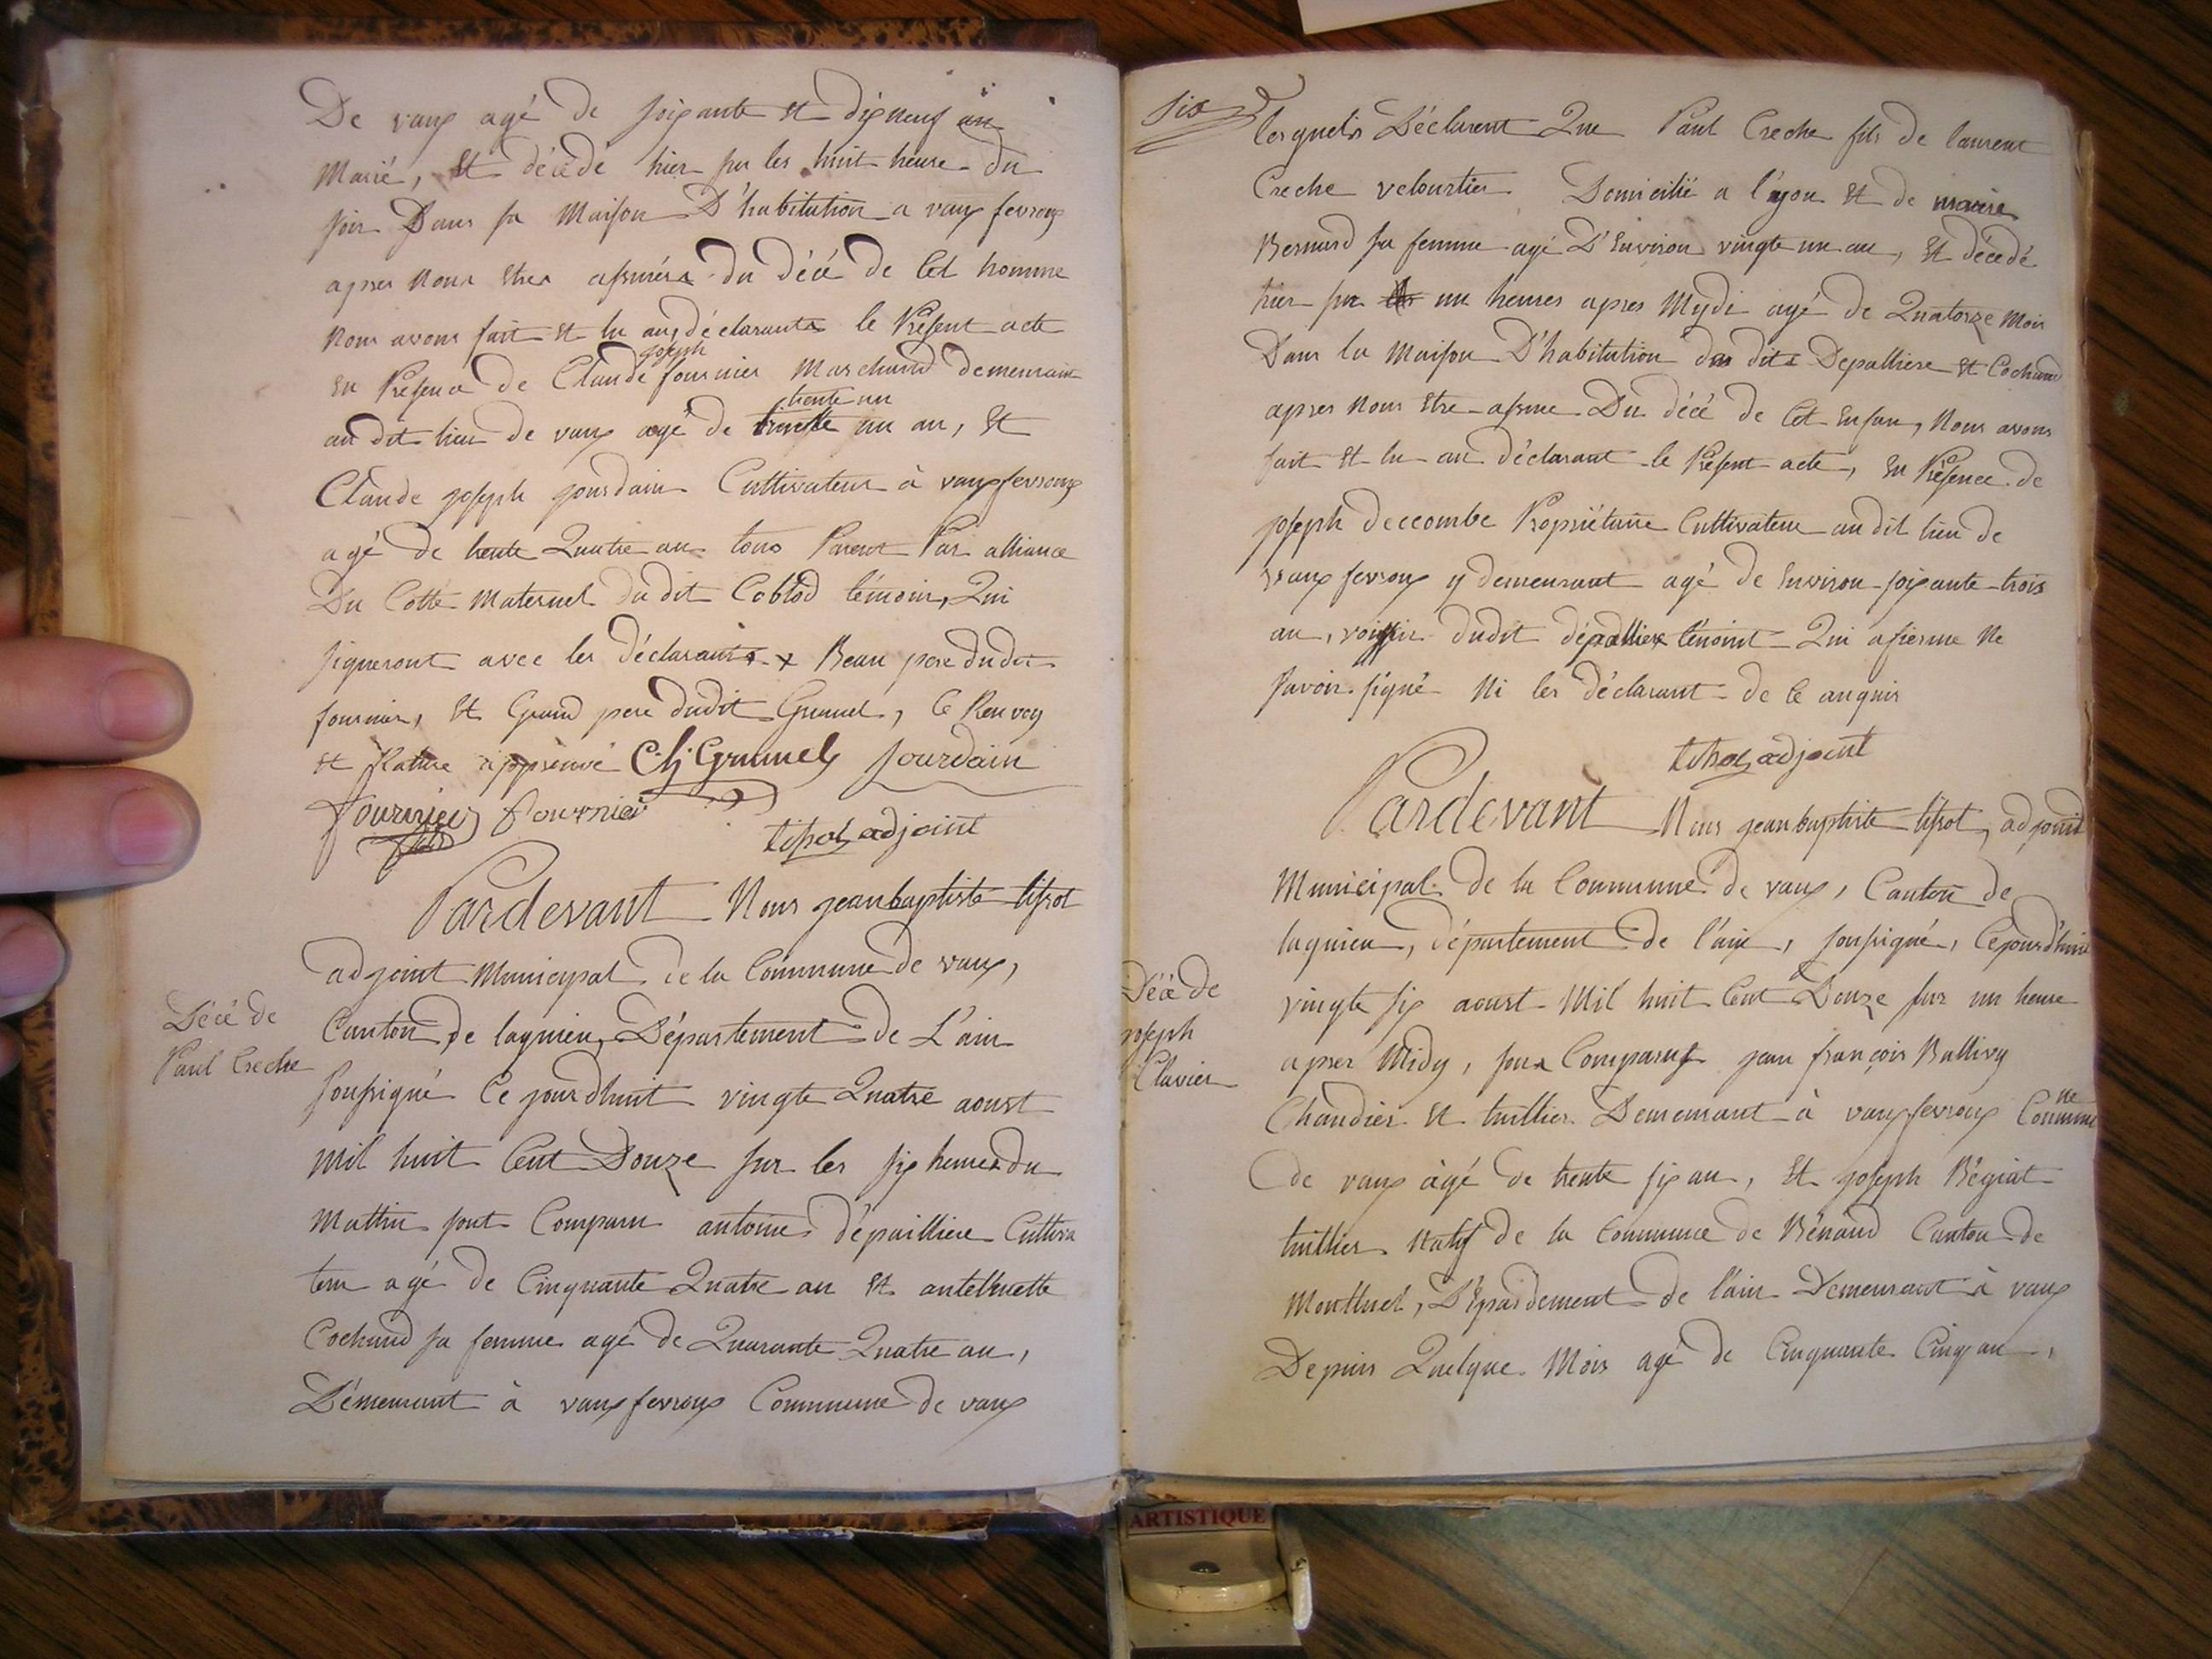 De vaux agé de soixante et dixneuf an
Marié, Et décédé hier sur les huit heure du
soir Dans sa Maison D'habitation a vaux fevroux
apres Nous Etres assurés du décé de Cet homme
Nous avons fait Et lu aux déclarants le Présent acte
joseph
En Présence de Claude fournier Marchand demeurant
trente un
au dit lieu de vaux agé de un an, Et
Claude joseph jourdain Cultivateur à vauxfevroux
agé de trente Quatre an tous Parent Par alliance
Du Cotté Maternel du dit Coblod témoins, Qui
signeront avec les Déclarants x Beau pere dudit
fournier, Et Grand pere dudit Grumel, Ce Renvoy
et Rature appreuvé Ch Grumel Jourdain
fournier fournier
tissot adjoint
Pardevant Nous jeanbaptiste tissot
adjoint Municipal de la Commune de vaux,
Décé de
Paul Creche
Canton de lagnieu, Département de L'ain
soussigné Ce jourdhuit vingte Quatre aoust
Mil huit Cent Douze sur les six heures du
Mattin sont Comparu antoine dépaillier Cultiva
teur agé de Cinquante Quatre an Et
Cochand sa femme agé de Quarante Quatre an,
Démeurant à vaux fevroux Commune de vaux
six
lesquels Déclarent Que Paul Creche fils de laurent
Creche veloutier Domicilié a l'yon Et de marie
Bernard sa femme agé D'Environ vingte un an, Et décédé
hier sur un heures apres Mydi agé de Quatorze Mois
Dans la Maison D'habitation des dits Depalliere Et Cochand
apres Nous Etre assure Du décé de Cet Enfan, Nous avons
fait Et lu au déclarant le Présent acte, En Présence de
joseph deccombe Propriétaire Cultivateur au dit lieu de
vaux fevroux y demeurant agé de Environ soixante trois
an, voissin dudit dépallier témoint Qui afierme Ne
savoir signé Ni les déclarant de Ce anquis
tissot adjoint
Pardevant Nous jeanbaptiste tissot, adjoint
Municipal de la Commune de vaux, Canton de
lagnieu, département de l'ain, soussigné, Cejourd'huit
Décé de
joseph
Clavier
vingte six aoust Mil huit Cent Douze sur un heure
apres Midy, sons Comparus jean françois Ballivy
Chaudier Et tuillier Demeurant à vaux fevroux Commune
de vaux àgé de trente six an, Et joseph Bégiat
tuillier Natif de la Commune de Bénand Canton de
Montluel, D'Epardement de l'ain Demeurant à vaux
Depuis Quelque Mois agé de Cinquante Cinq an,
ARTISTIQUE